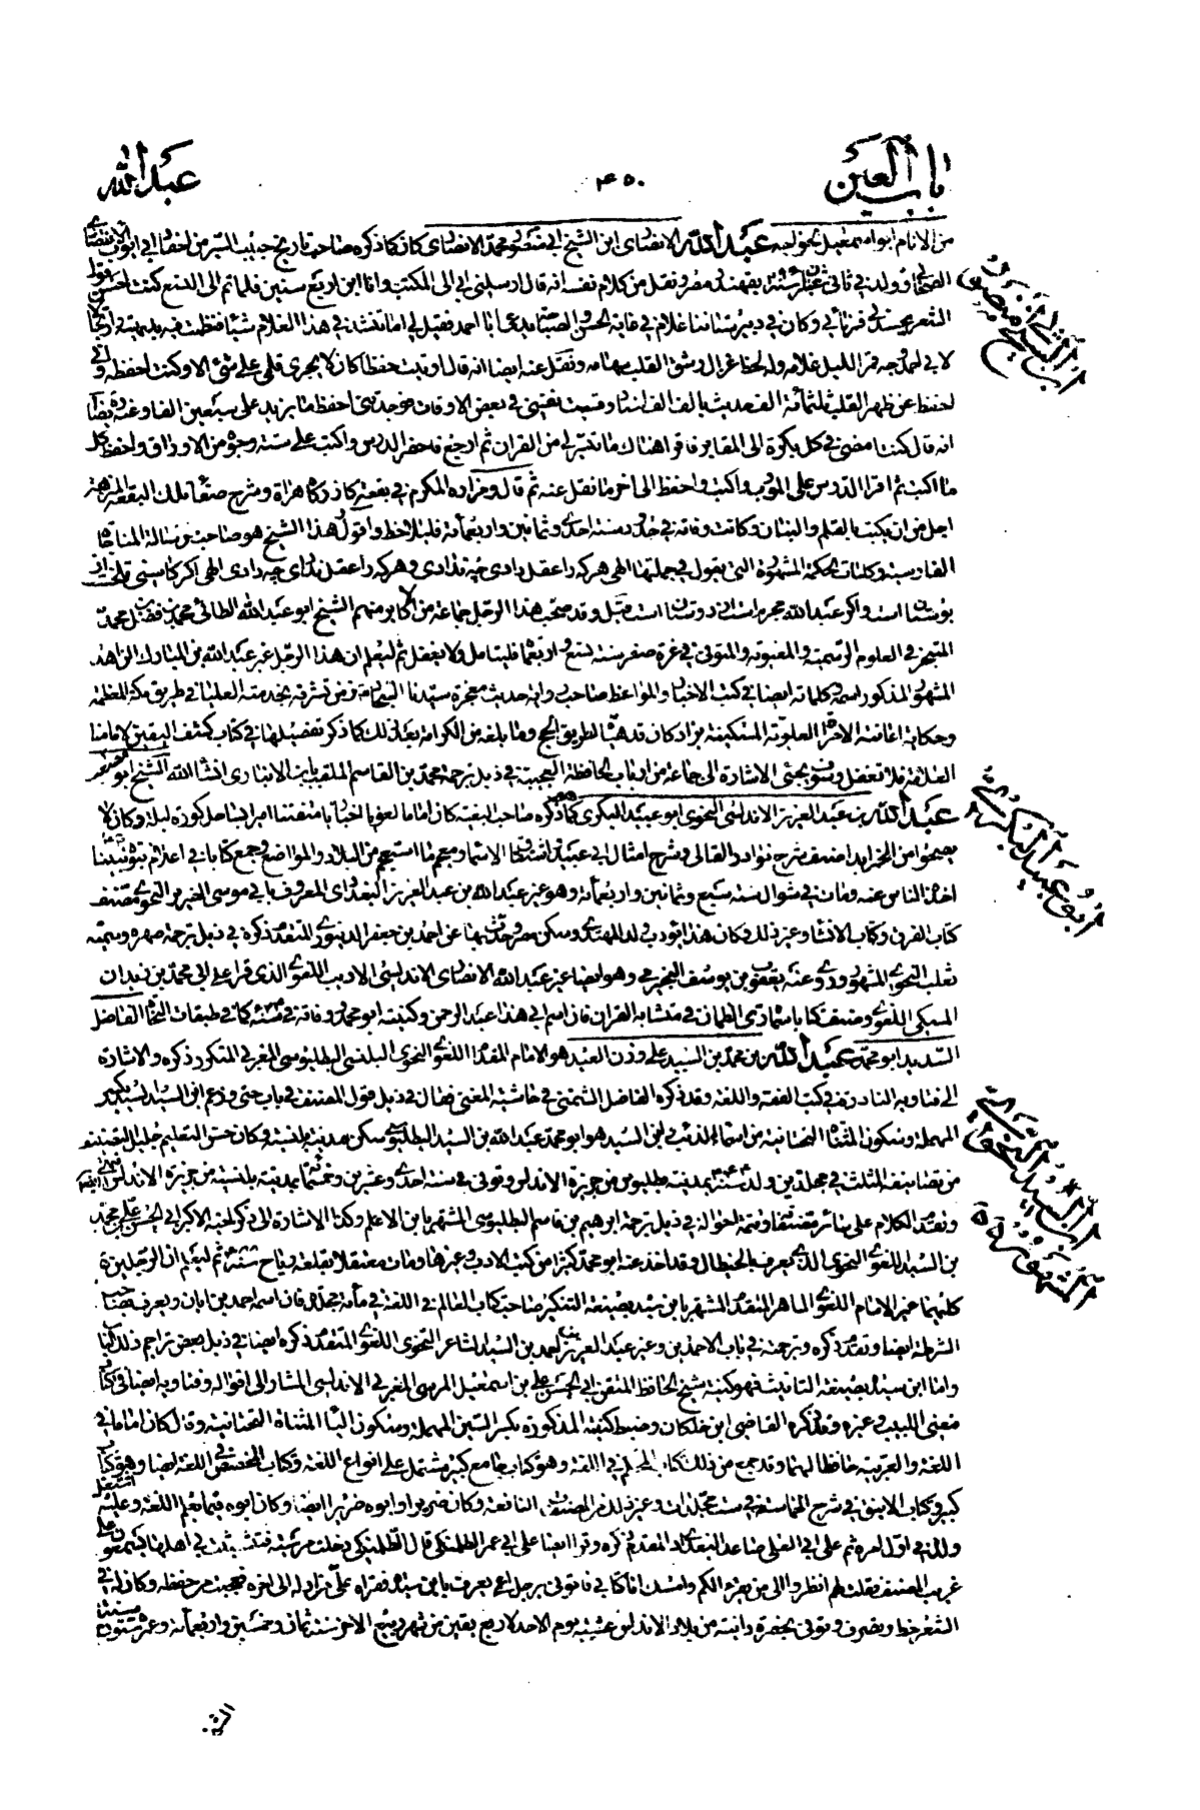 باب العين
۴۵۰
عبد الله
من الانام ابو اسمعيل خواجه عبد الله الانصارى ابن الشيخ ابى منصور محمد الانصارى كان كما ذكره صاحب تاريخ حبيب السير من احفاد ابى ايوب الانصارى
الصحابى وولد فى ثانى شعبان بقهندز مصر ونقل من كلام نفسه انه قال ارسلنى ابى الى المكتب وانا ابن اربع سنين فلما تم لى التسع كنت احسن
الشعر وكان فى دبيرستاننا غلام فى غاية الحسن والصباحة يدعى ابا احمد فقيل لى اما تنشد فى هذا الغلام شيئا فنظمت فيه
لابى احمد وجه قمر الليل غلامه وله لحظ غزال رشق القلب سهامه ونقل عنه ايضا انه قال اوتيت حفظا كان لا يجرى قلمى على شئ الا وكنت احفظه وانى
احفظ عن ظهر القلب ثلثمائة الف حديث بالف الف اسناد وقست نفسى فى بعض الاوقات فوجدتنى احفظ ما يزيد على سبعين الفا وعنه ايضا
انه قال كنت امضى فى كل بكرة الى المقابر فاقرا هناك ما تيسر لى من القران ثم ارجع فاحضر الدرس واكتب على ستة وجوه من الاوراق واحفظ كل
ما اكتب ثم اقرا الدرس على المؤدب واكتب واحفظ الى اخر ما نقل عنه ثم قال ومزاره المكرم فى بقعة كازركاه هراة وشرح صفاء تلك البقعة المتبركة
اجل من ان يكتب بالقلم والبنان وكانت وفاته فى حدود سنة احدى وثمانين واربعمائة فليلاحظ واقول هذا الشيخ هو صاحب رسالة المناجاة
الفارسية وكلمات الحكمة المشهورة التى يقول فى جملتها الهى هر كه را عقل دادى چه ندادى وهر كه را عقل ندادى چه دادى الهى اكر كاسنى تلخ است از
بوستان است واكر عبد الله مجرم است از دوستان است وقد صحب هذا الرجل جماعة من الاكابر منهم الشيخ ابو عبد الله الطائى محمد بن فضل بن محمد
المتبحر فى العلوم الرسمية والمتوفى فى غرة صفر سنة واربعمائة فليتامل ولا يغفل ثم ليعلم ان هذا الرجل غير عبد الله بن المبارك الزاهد
المشهور المذكور اسمه وكلماته ايضا فى كتب الاخبار والمواعظ صاحب رواية حديث معجزة سيدنا السجاد ومن تشرفه بخدمته العليا فى طريق مكة المعظمة
وحكاية اغاثته الامراة العلوية المسكينة بزاد كان قد هيأ لطريق الحج وما بلغه من الكرامة بعد ذلك كما ذكر تفصيلها فى كتاب كشف اليقين لامامنا
العلامة فلا تغفل وسوف يجئ الاشارة الى جماعة من ارباب الحافظة العجيبة فى ذيل ترجمة محمد بن القاسم الملقب بابن الانبارى انشاء الله الشيخ ابو
عبد الله بن عبد العزيز الاندلسى النحوى ابو عبيد البكرى كما ذكره صاحب البغية كان اماما لغويا اخباريا متفننا اميرا بساحل كورة لبلة وكان لا
يصحو من الخمر ابدا صنف شرح نوادر القالى وشرح امثال ابى عبيد ومعجم ما استعجم من البلاد والمواضع وجمع كتابا فى اعلام نبوة نبينا
اخذه الناس عنه ومات فى شوال سنة سبع وثمانين واربعمائة وهو غير عبد الله بن عبد العزيز البغدادى المعروف بابى موسى الضرير النحوى مصنف
كتاب الفرق وكتاب الانشاء وغير ذلك وكان هذا يؤدب ولد المهتدى وسكن مصر وحدث بها عن احمد بن جعفر الدينورى المتقدم ذكره فى ذيل ترجمة صهره وسميه
ثعلب النحوى المشهور وروى عنه يعقوب بن يوسف النجيرمى وهو ايضا غير عبد الله الانصارى الاندلسى الاديب اللغوى الذى قرا على ابى محمد بن زيدان
المكى اللغوى وصنف كتابا سماه رى الظمان فى متشابه القران فان اسم ابى هذا عبد الرحمن وكنيته ابو محمد ووفاته فى كما فى طبقات النحاة الفاضل
السديد ابو محمد عبد الله بن محمد بن السيد على وزن العيد هو الامام المقدم اللغوى النحوى البلنسى البطليوسى المغربى المتكرر ذكره والاشارة
الى فتاويه النادرة فى كتب الفقه واللغة وقد ذكره الفاضل الشمنى فى حاشية المغنى فقال فى ذيل قول المصنف فى باب حتى وزعم ابن السيد السيد بكسر
المهملة وسكون المثناة التحتانية من اسماء الذئب وابن السيد هو ابو محمد عبد الله بن السيد البطليوسى سكن مدينة بلنسية وكان حسن التعليم جليل التصنيف
من تصانيفه المثلث فى مجلدين ولد بمدينة بطليوس من جزيرة الاندلس وتوفى فى سنة احدى وعشرين وخمسمائة بمدينة بلنسية من جزيرة الاندلس انتهى
وتقدم الكلام على سائر مصنفاته وتتمة احواله فى ذيل ترجمة ابرهيم بن قاسم البطليوسى المشتهر بابن الاعلم وكذا الاشارة الى ذكر اخيه الاكبر ابى الحسن على بن محمد
بن السيد اللغوى النحوى الذى يعرف بالخيطال وقد اخذ عنه ابو محمد كثيرا من كتب الادب وغيرها ومات معتقلا بقلعة رباح ثم ليعلم ان الرجلين
كليهما غير الامام اللغوى الماهر المتقدم المشتهر بابن سيد بصيغة التنكير صاحب كتاب العالم فى اللغة فى مائة مجلد فان اسمه احمد بن ابان ويعرف بصاحب
الشرطة ايضا وتقدم ذكره وترجمته فى باب الاحمدين وغير عبد العزيز بن احمد بن السيد الشاعر النحوى اللغوى المتقدم ذكره ايضا فى ذيل بعض تراجم ذلك الباب
واما ابن سيده بصيغة التانيث فهو كنية شيخ الحافظ المتقن ابى الحسن على بن اسمعيل المرسى المغربى الاندلسى المشار الى اقواله وفتاويه ايضا فى كتاب
مغنى اللبيب وغيره وقد ذكره القاضى ابن خلكان وضبط كنيته المذكورة بكسر السين المهملة وسكون الياء المثناة التحتانية وقال كان اماما فى
اللغة والعربية حافظا لهما وقد جمع من ذلك كتاب المحكم فى اللغة وهو كتاب جامع كبير مشتمل على انواع اللغة وكتاب المخصص فى اللغة ايضا وهو كتاب
كبير وكتاب الانيق فى شرح الحماسة فى ست مجلدات وغير ذلك من المصنفات النافعة وكان ضريرا وابوه ضريرا ايضا وكان ابوه قيما بعلم اللغة وعليه اشتغل
ولده فى اول امره ثم على ابى العلى صاعد البغدادى المتقدم ذكره وقرا ايضا على ابى عمر الطلمنكى قال الطلمنكى دخلت مرسية فتشبث بى اهلها يسمعون على
غريب المصنف فقلت لهم انظروا الى من يقرء لكم وامسك انا كتابى فاتونى برجل اعمى يعرف بابن سيده فقراه على من اوله الى اخره فعجبت من حفظه وكان له فى
الشعر حظ وتصرف وتوفى بحضرة دانية من بلاد الاندلس عشية يوم الاحد لاربع بقين من شهر ربيع الاخر سنة ثمان وخمسين واربعمائة وعمره ستون سنة
ابو عبيد البكرى
ابن السيد النحوى
المشهور